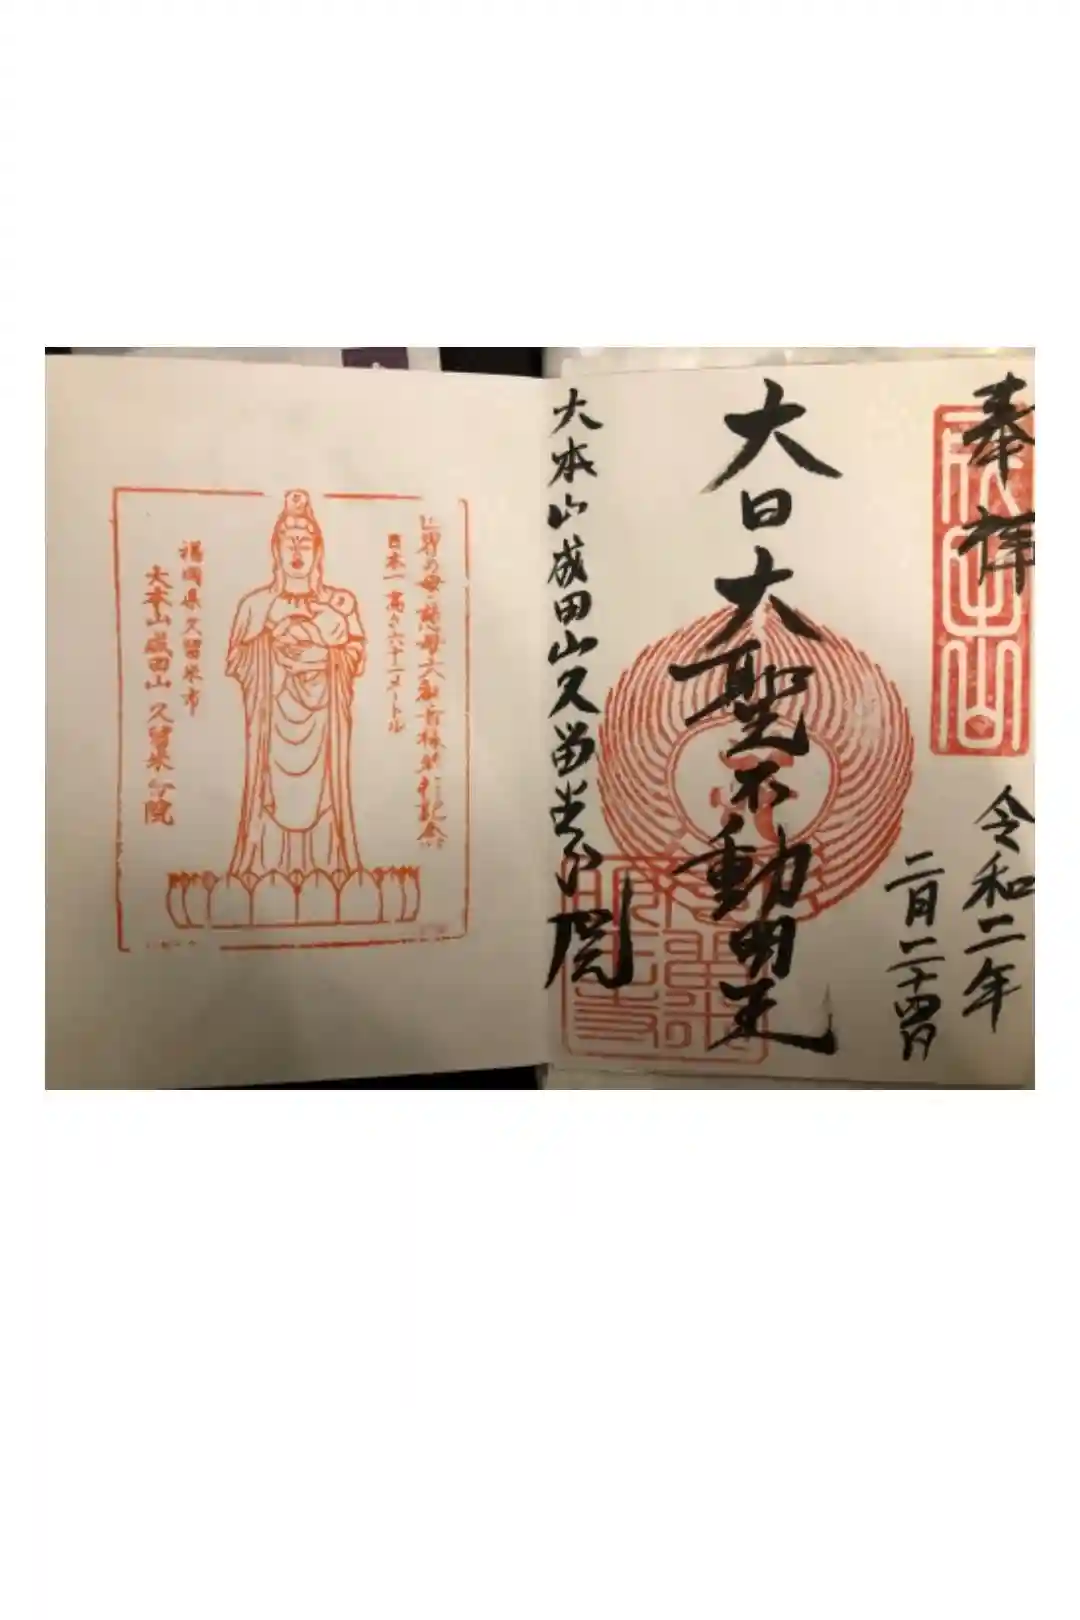 奉拝
令和二年
二月二十四日
大日大聖不動明王
大本山成田山久留米分院
成田山
世界の母 慈母大観音
日本一高さ六十一メートル
福岡県久留米市
大本山成田山久留米分院